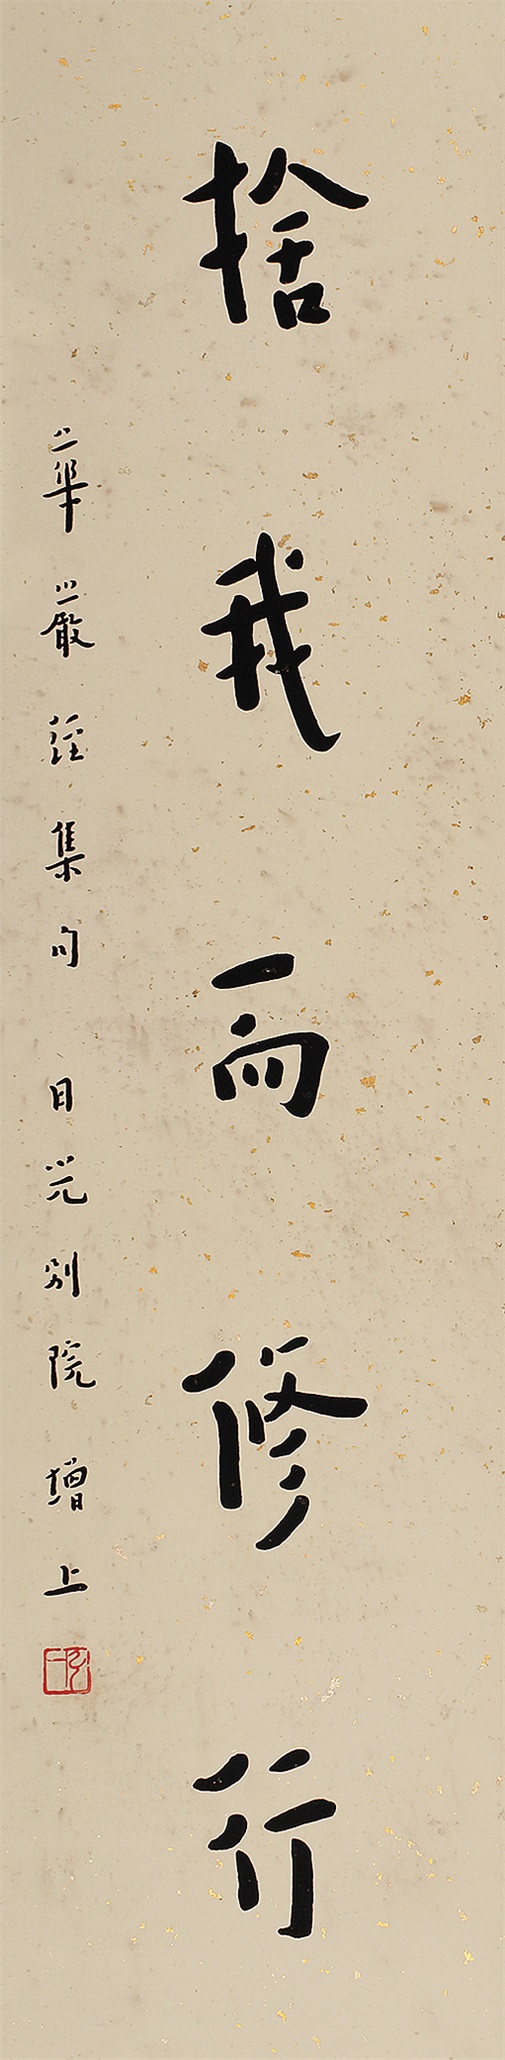 捨我而修行
華嚴經集句 月光別院增上